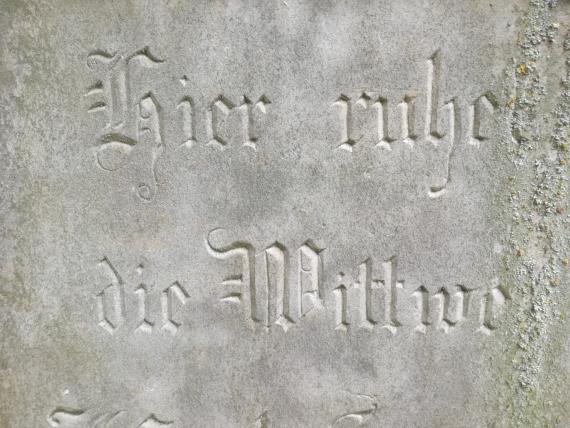 Hier ruhe
die Wittwe